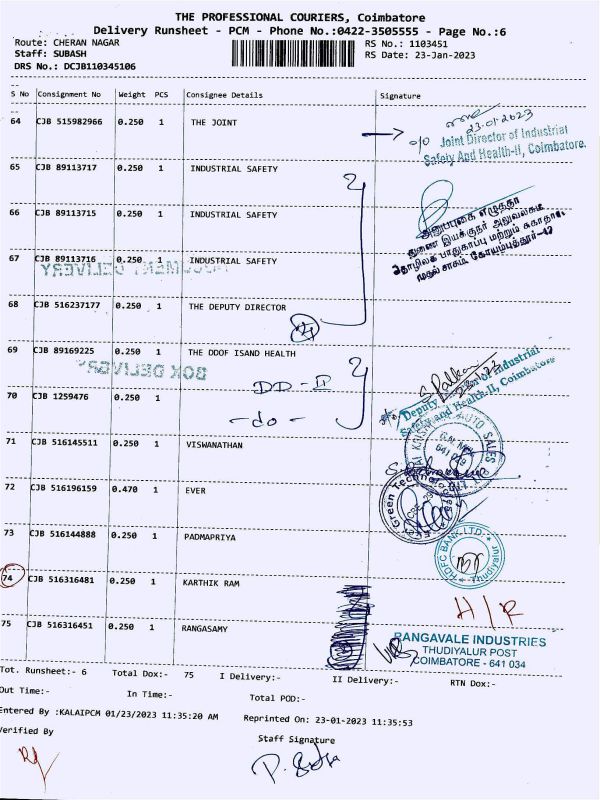 THE PROFESSIONAL COURIERS, Coimbatore
Delivery Runsheet - PCM - Phone No.:0422-3505555 - Page No.:6
Route: CHERAN NAGAR
Staff: SUBASH
DRS No.: DCJB110345106
RS No.: 1103451
RS Date: 23-Jan-2023
S No Consignment No Weight PCS Consignee Details Signature
64 CJB 515982966 0.250 1 THE JOINT
23-01-2023
Joint Director of Industrial
Safety And Health-II, Coimbatore.
65 CJB 89113717 0.250 1 INDUSTRIAL SAFETY
66 CJB 89113715 0.250 1 INDUSTRIAL SAFETY
துணை இயக்குநர் அலுவலகம்
தொழிலக பாதுகாப்பு மற்றும் சுகாதாரம்
முதல் சரகம், கோயம்புத்தூர்-42
67 CJB 89113716 0.250 1 INDUSTRIAL SAFETY
DOCUMENT DELIVERY
68 CJB 516237177 0.250 1 THE DEPUTY DIRECTOR
69 CJB 89169225 0.250 1 THE DDOF ISAND HEALTH
BOX DELIVERY
DD - II
Deputy Director of Industrial
Safety and Health-II, Coimbatore
70 CJB 1259476 0.250 1
- do -
71 CJB 516145511 0.250 1 VISWANATHAN
SAI KRISHNA AUTO SALES
G.N. Mills
641 029
72 CJB 516196159 0.470 1 EVER
Green Technology
73 CJB 516144888 0.250 1 PADMAPRIYA
HDFC BANK LTD.
Thudiyalur
74 CJB 516316481 0.250 1 KARTHIK RAM
H/R
75 CJB 516316451 0.250 1 RANGASAMY
RANGAVALE INDUSTRIES
THUDIYALUR POST
COIMBATORE - 641 034
Tot. Runsheet:- 6 Total Dox:- 75 I Delivery:- II Delivery:- RTN Dox:-
Out Time:- In Time:- Total POD:-
Entered By :KALAIPCM 01/23/2023 11:35:20 AM Reprinted On: 23-01-2023 11:35:53
Verified By Staff Signature